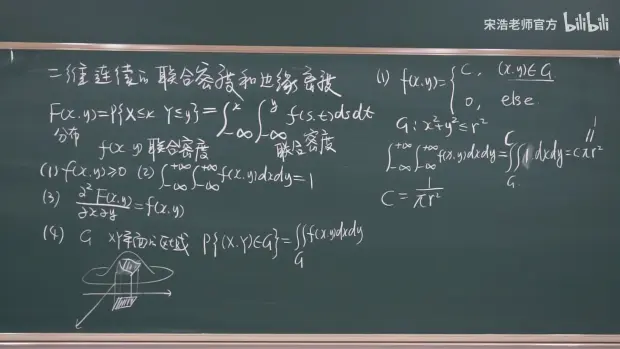 宋浩老师官方 bilibili
二维连续的联合密度和边缘密度
F(x,y)=P{X≤x Y≤y}=∫_{-∞}^{x}∫_{-∞}^{y} f(s,t)dsdt
分布 f(x,y)联合密度 联合密度
(1) f(x,y)≥0 (2) ∫_{-∞}^{+∞}∫_{-∞}^{+∞} f(x,y)dxdy=1
(3) ∂²F(x,y)/∂x∂y=f(x,y)
(4) G XY平面的区域 P{(X,Y)∈G}=∬_G f(x,y)dxdy
(1) f(x,y)={C, (x,y)∈G
0, else
G:x²+y²≤r²
∫_{-∞}^{+∞}∫_{-∞}^{+∞} f(x,y)dxdy=C∬_G 1dxdy=cπr²
1
C=1/πr²